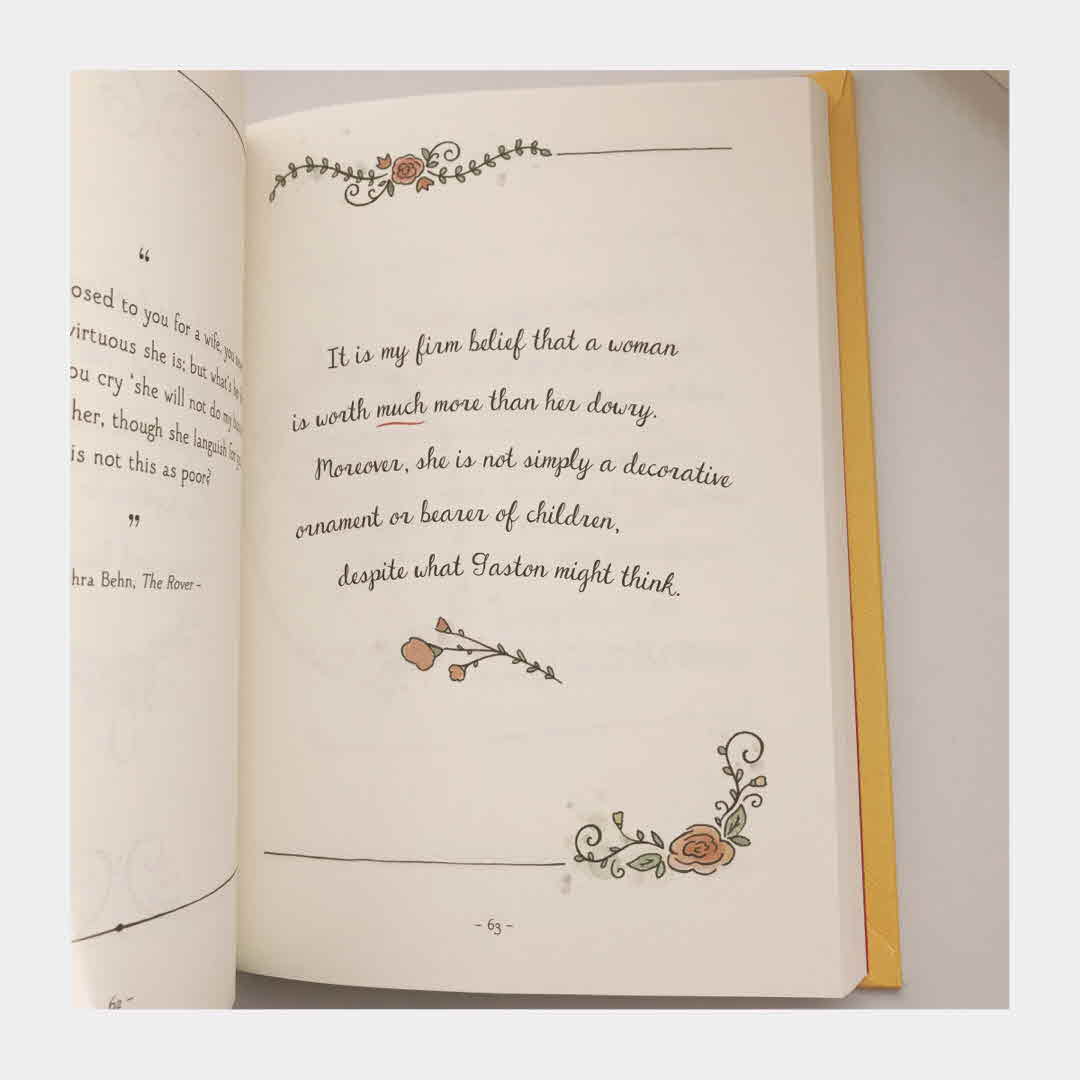 “
osed to you for a wife, you
virtuous she is; but what's
ou cry ‘she will not do my
her, though she languish for
is not this as poor?
”
hra Behn, The Rover -
62 -
It is my firm belief that a woman
is worth much more than her dowry.
Moreover, she is not simply a decorative
ornament or bearer of children,
despite what Gaston might think.
- 63 -